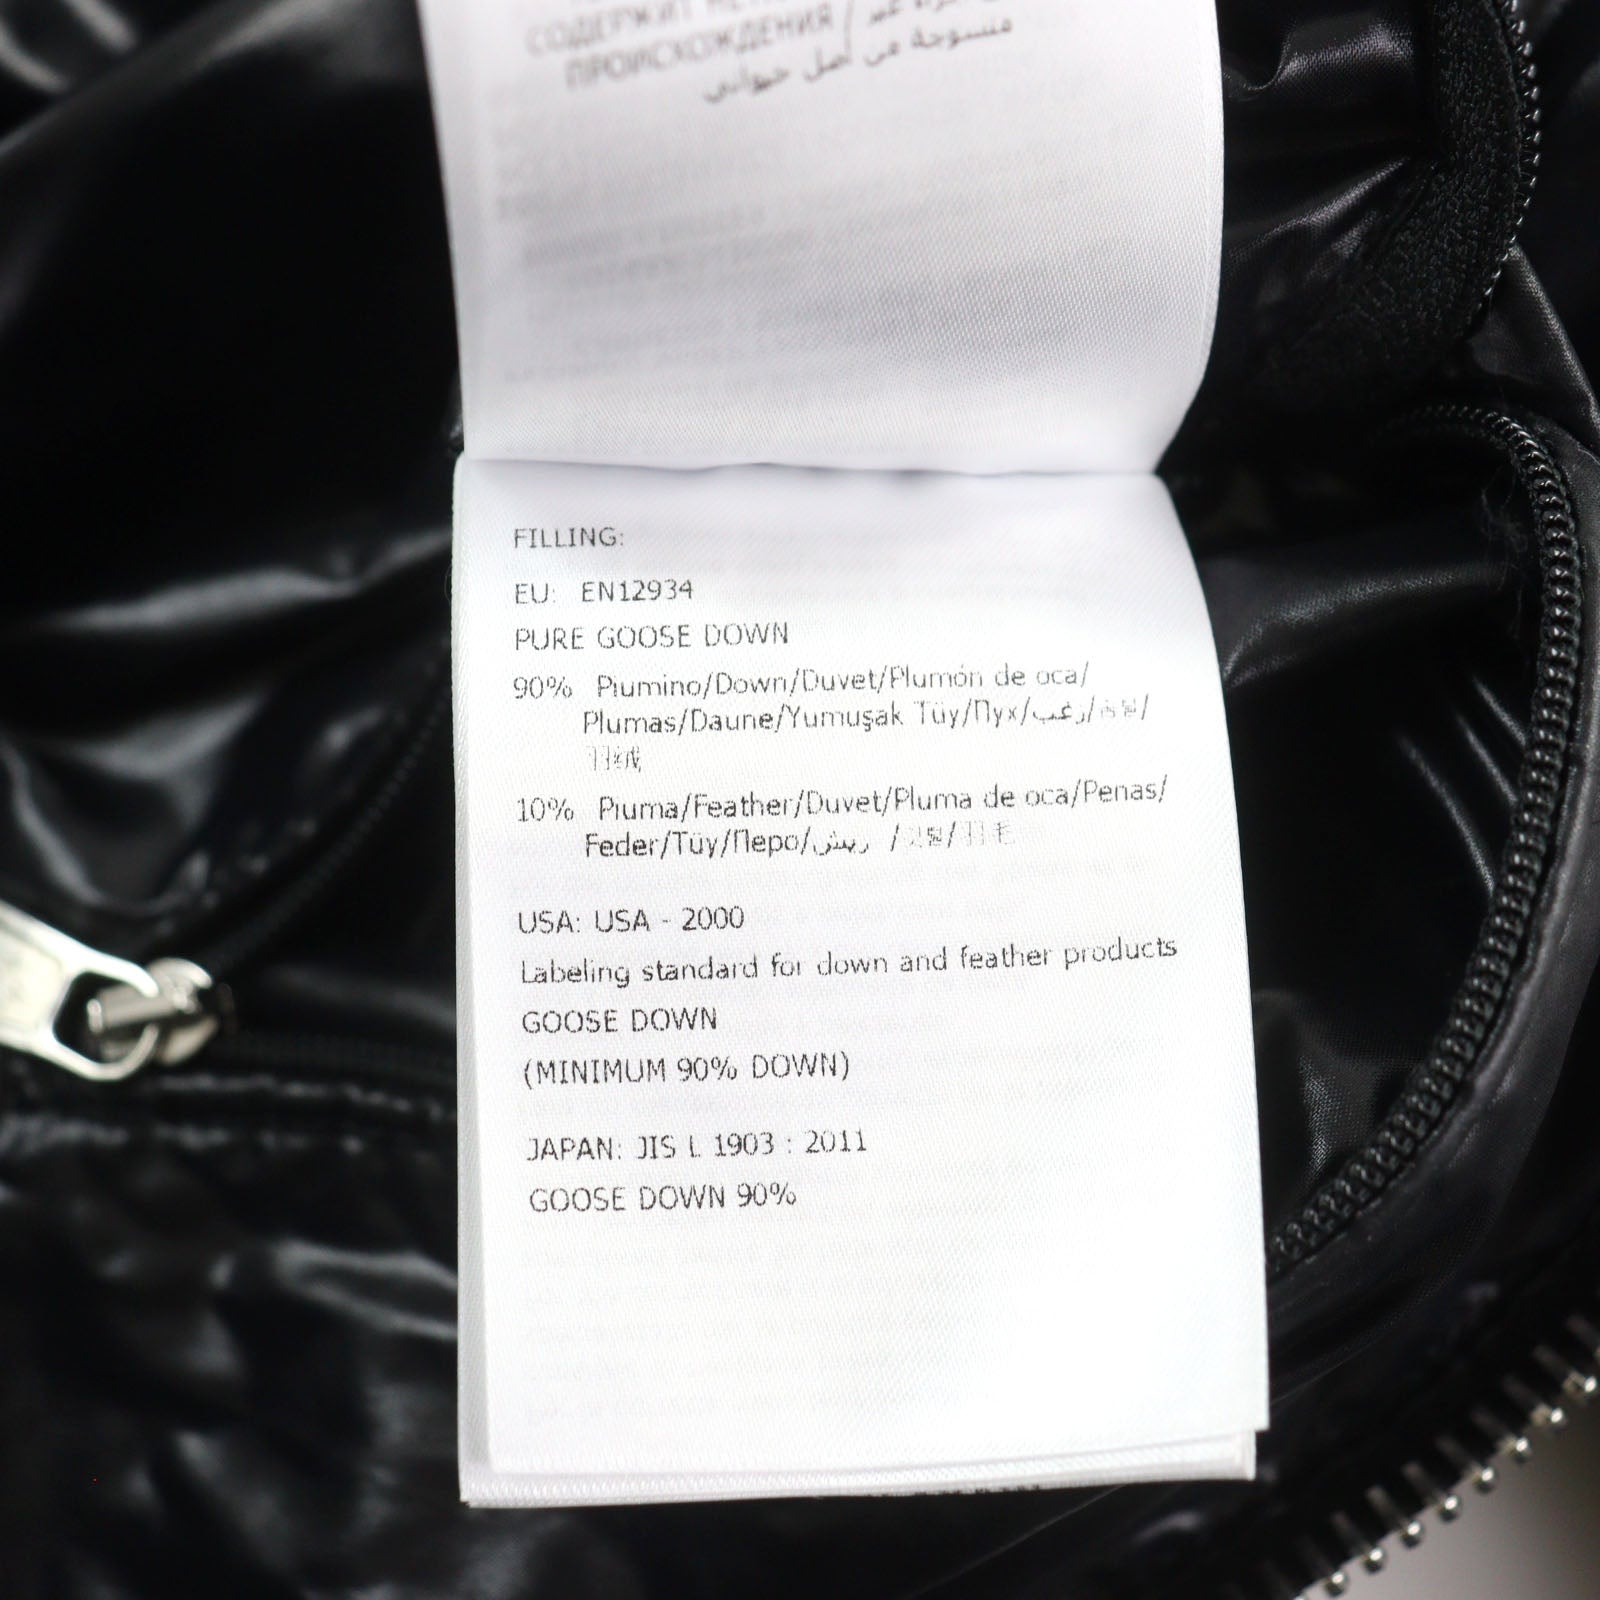 СОДЕРЖИТ
ПРОИСХОЖДЕНИЯ /
منسوجة من أصل حيواني
FILLING:
EU: EN12934
PURE GOOSE DOWN
90% Piumino/Down/Duvet/Plumón de oca/
Plumas/Daune/Yumuşak Tüy/Пух/زغب/솜털/
羽绒
10% Piuma/Feather/Duvet/Pluma de oca/Penas/
Feder/Tüy/Перо/ريش /깃털/羽毛
USA: USA - 2000
Labeling standard for down and feather products
GOOSE DOWN
(MINIMUM 90% DOWN)
JAPAN: JIS L 1903 : 2011
GOOSE DOWN 90%